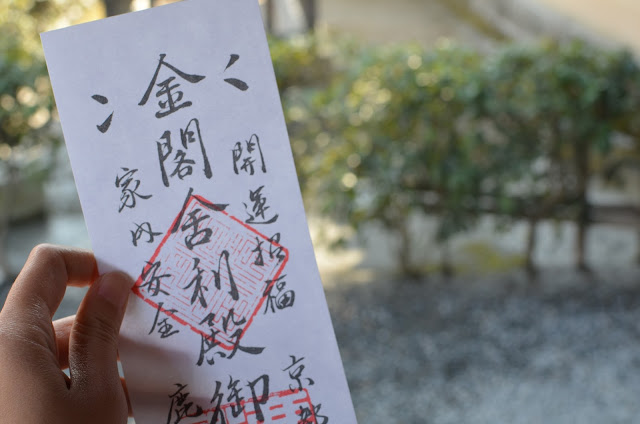 開運招福
京都
金閣舎利殿御
家内安全
鹿